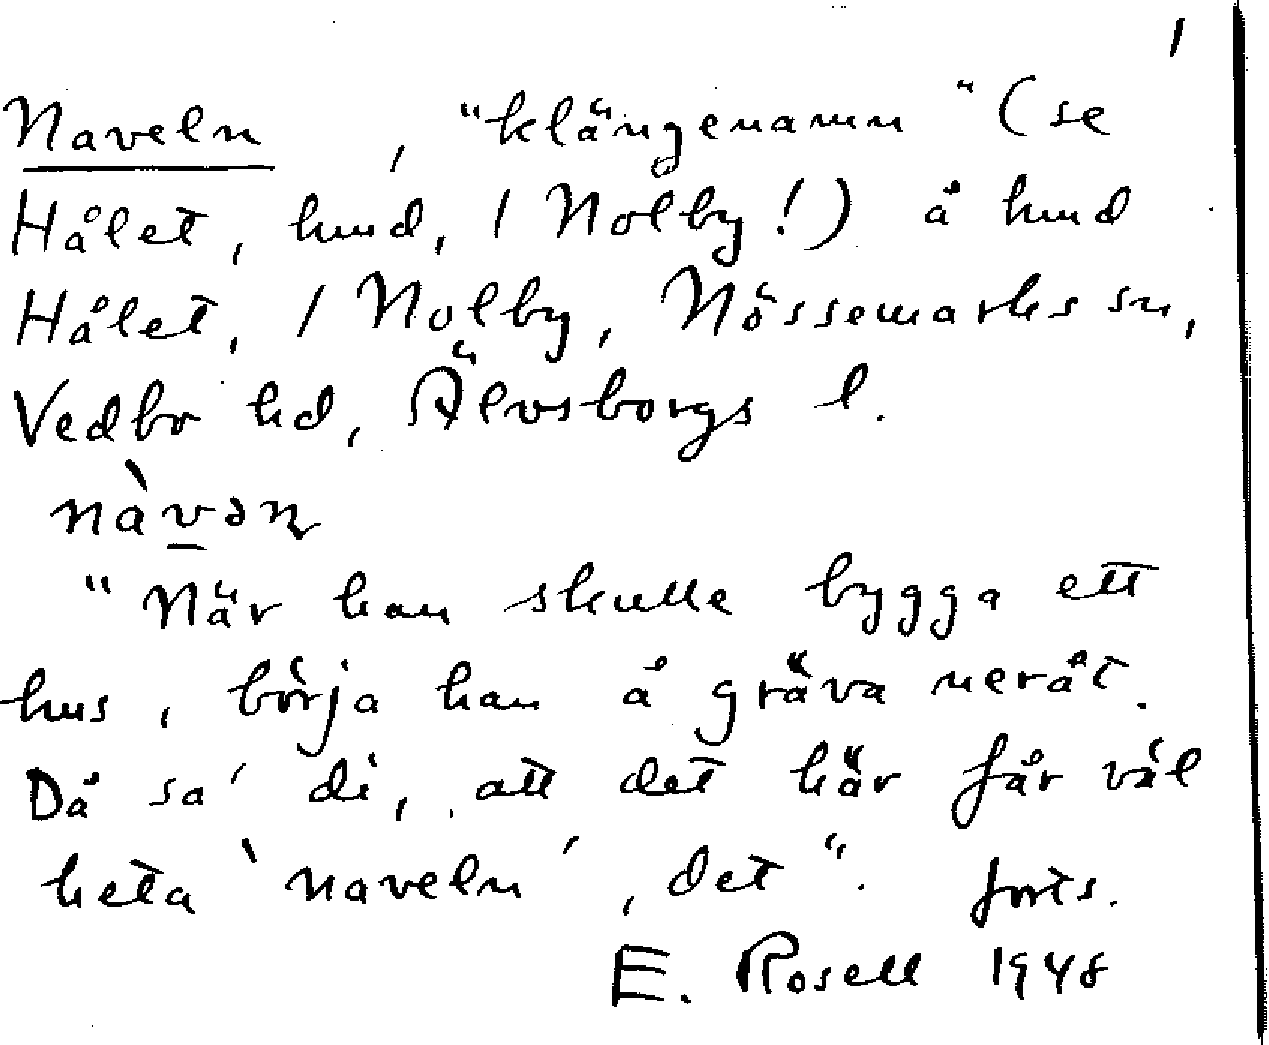 1
Naveln, "klängenamn" (se
Hålet, hmd, 1 Nolby!) å hmd
Hålet, 1 Nolby, Nössemarks sn,
Vedbo hd, Älvsborgs l.
nàvəɳ
"När han skulle bygga ett
hus, börja han å gräva neråt.
Då sa' di, att det här får väl
heta 'naveln', det". forts.
E. Rosell 1948